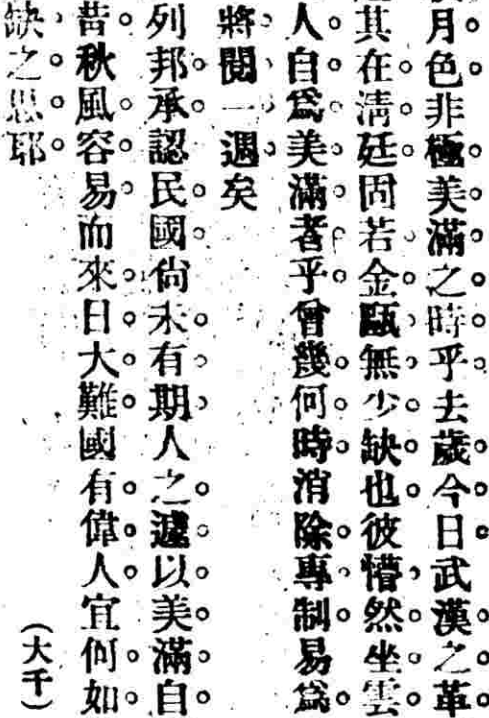 月色非極美滿之時乎去歲今日武漢之革
其在清廷固若金甌無少缺也彼懵然坐雲
人自爲美滿者乎曾幾何時消除專制易爲
將閱一週矣
列邦承認民國尙未有期人之遽以美滿自
昔秋風容易而來日大難國有偉人宜何如
缺之思耶
（大千）